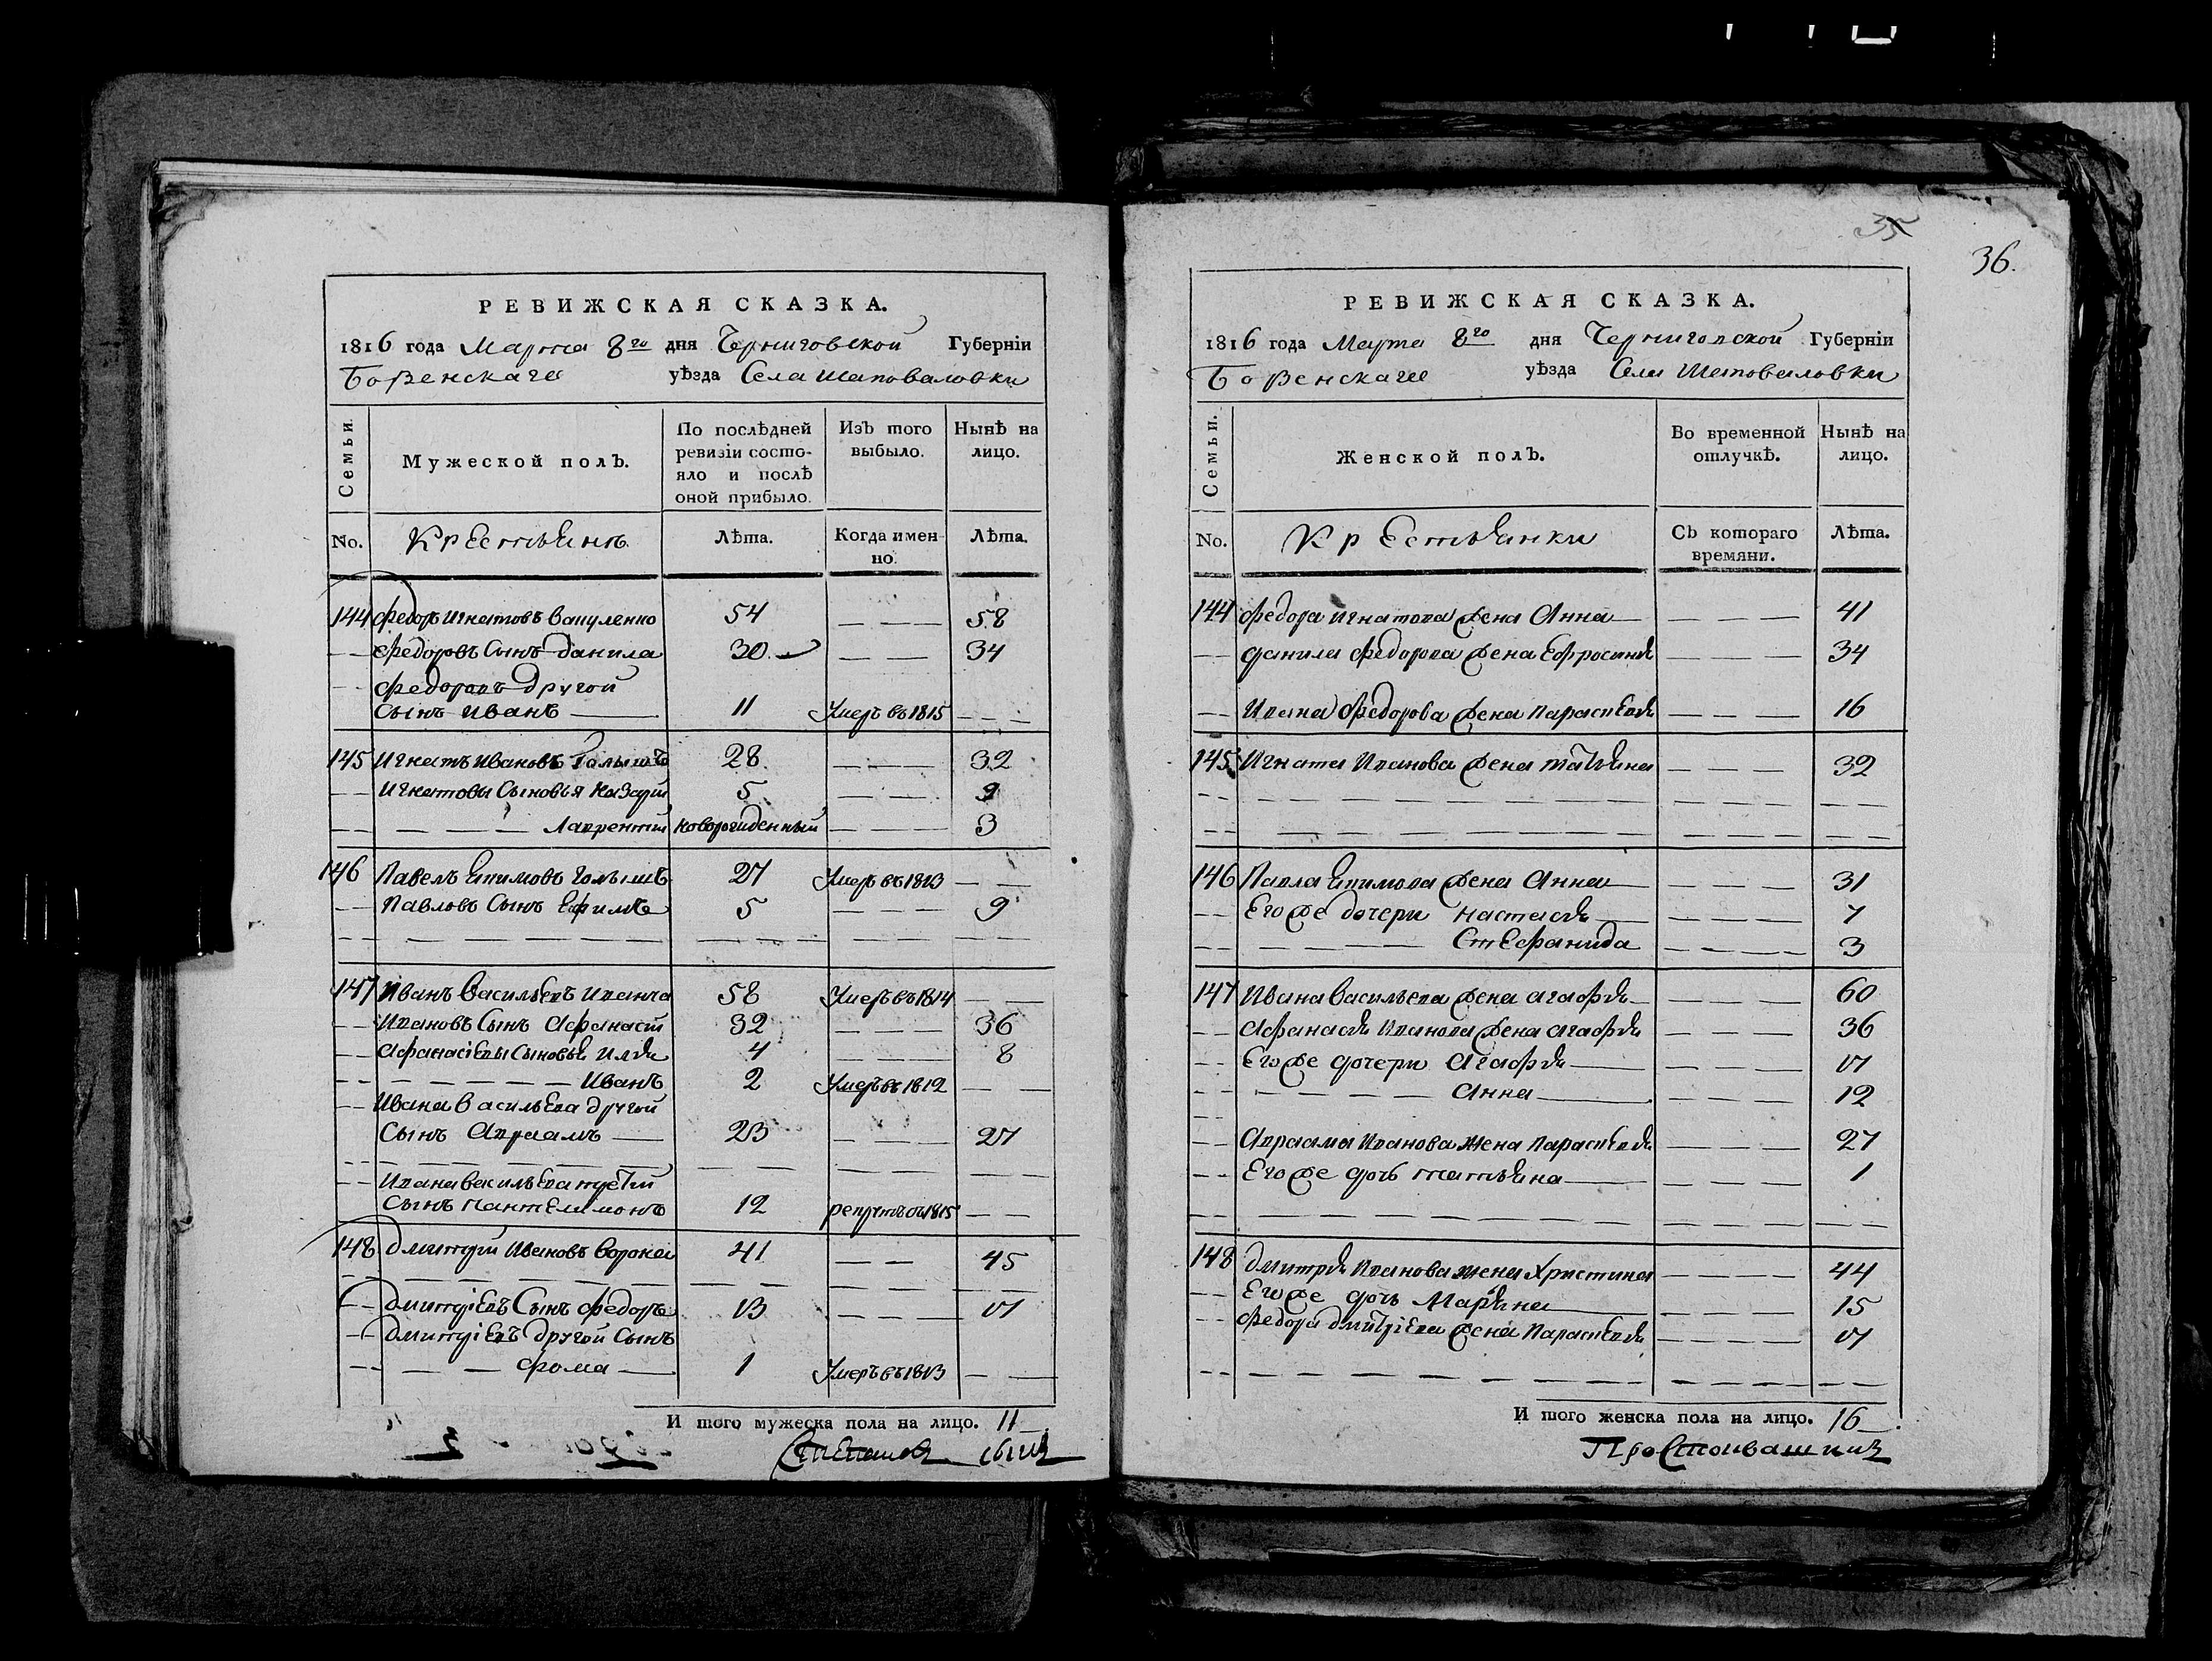 РЕВИЖСКАЯ СКАЗКА.
1816 года Марта 8го дня Черниговской Губерніи
Борзенскаго уѣзда Села Шаповаловки
Семьи.
Мужеской полъ.
По послѣдней ревизіи состо-
яло и послѣ
оной прибыло.
Изъ того
выбыло.
Нынѣ на
лицо.
No.
Крестьянъ
Лѣта.
Когда имен-
но.
Лѣта.
144 Федоръ Игнатовъ Вакуленко 54 — — — 58
— — Федоровъ Сынъ Данила 30 — — 34
— — Федоровъ другой
Сынъ Иванъ — 11 Умеръ въ 1815 — — —
145 Игнатъ Ивановъ 28 — — — 32
— — Игнатовы Сыновья Назарій 5 — — — 9
— — — — — Лаврентій новорожденный — — — 3
146 Павелъ Екимовъ Голышъ 27 Умеръ въ 1813 — —
— — Павловъ Сынъ Ефимъ 5 — — — 9
147 Иванъ Васильевъ 58 Умеръ въ 1814 — —
— — Ивановъ Сынъ Афанасій 32 — — — 36
— — Афанасіевы Сыновья Илья 4 — — — 8
— — — — — Иванъ 2 Умеръ въ 1812 — —
— — Ивана Васильева другой
Сынъ Авраамъ — 23 — — — 27
— — Ивана Васильева третій
Сынъ Пантелимонъ 12 рекрутъ въ 1815 — —
148 Дмитрій Ивановъ Ворона 41 — — 45
— — Дмитріевъ Сынъ Федоръ 13 — — — 17
— — Дмитріевъ другой Сынъ
— — — — Фома — 1 Умеръ въ 1813 — —
И того мужеска пола на лицо. 11
35
36.
РЕВИЖСКАЯ СКАЗКА.
1816 года Марта 8го дня Черниговской Губерніи
Борзенскаго уѣзда Села Шаповаловки
Семьи.
Женской полъ.
Во временной
отлучкѣ.
Нынѣ на
лицо.
No.
Крестьянки
Съ котораго
времяни.
Лѣта.
144 Федора Игнатова жена Анна — — — — 41
— — Данила Федорова жена Ефросинья — — — 34
— — Ивана Федорова жена Параскевья — — — 16
145 Игната Иванова жена Татьяна — — — 32
146 Павла Екимова жена Анна — — — — 31
— — Его же дочери Настасья — — — — 7
— — — — — Стефанида — — — — 3
147 Ивана Васильева жена Агафья — — — — 60
— — Афанасья Иванова жена Агафья — — — 36
— — Его же дочери Агафья — — — — 17
— — — — — Анна — — — — 12
— — Авраама Иванова жена Параскевья — — — 27
— — Его же дочь Татьяна — — — — 1
148 Дмитрія Иванова жена Христина — — — — 44
— — Его же дочь Марьяна — — — — 15
— — Федора Дмитріева жена Параскевья — — — — 17
И того женска пола на лицо. 16